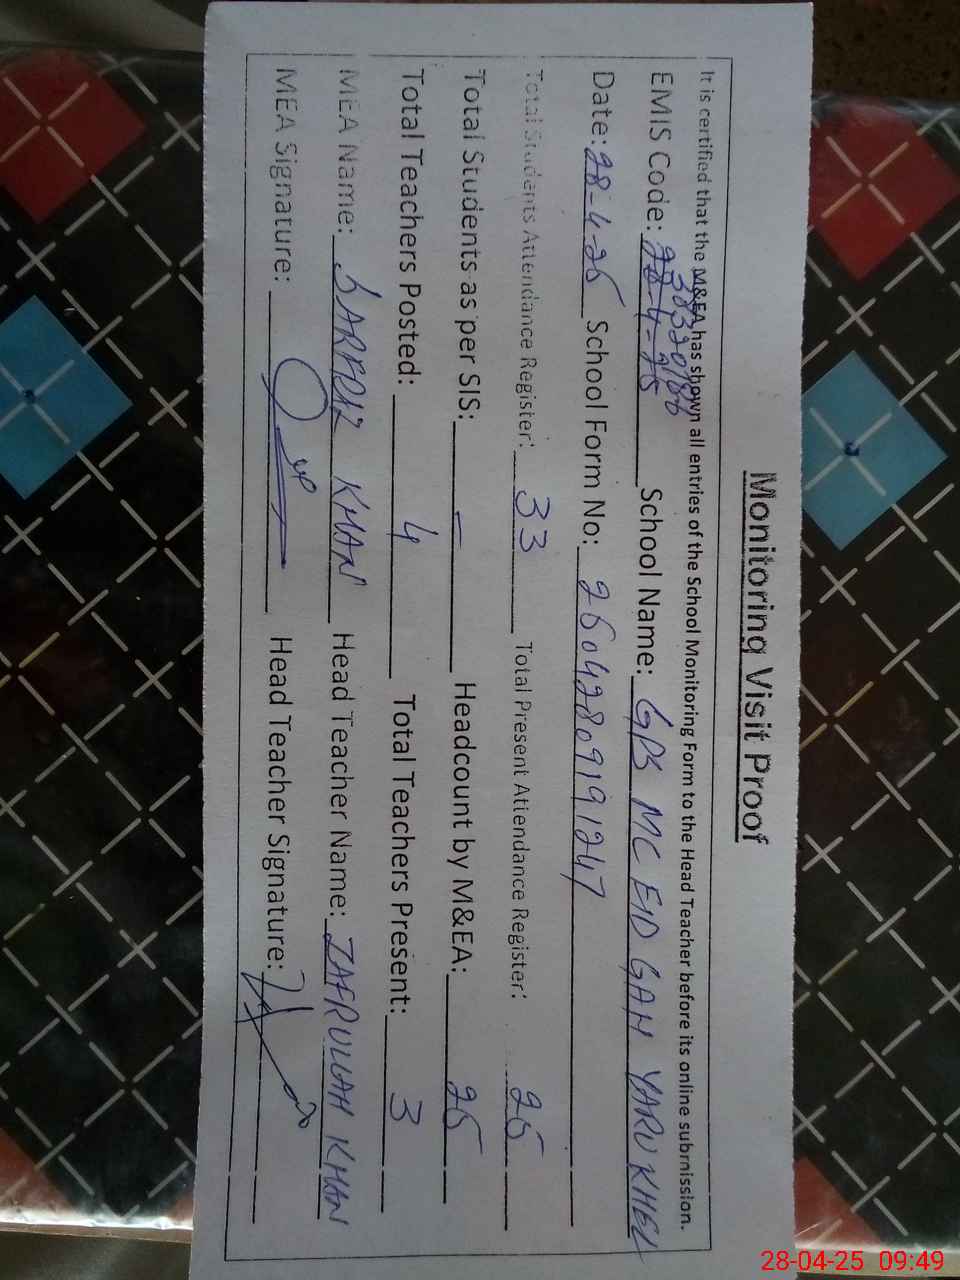 Monitoring Visit Proof
It is certified that the M&EA has shown all entries of the School Monitoring Form to the Head Teacher before its online submission.
38320186
EMIS Code: 28-4-25 School Name: GPS MC EID GAH YARU KHEL
Date: 28-4-25 School Form No: 25042809191247
Total Students Attendance Register: 33 Total Present Attendance Register: 25
Total Students as per SIS: - Headcount by M&EA: 25
Total Teachers Posted: 4 Total Teachers Present: 3
MEA Name: SARFRAZ KHAN Head Teacher Name: ZAFRULLAH KHAN
MEA Signature: Head Teacher Signature:
28-04-25 09:49